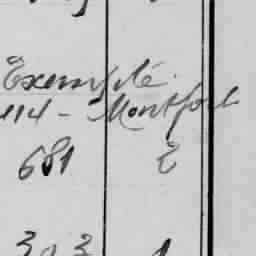 Exempté.
114 - Montfort
681 E
303 1